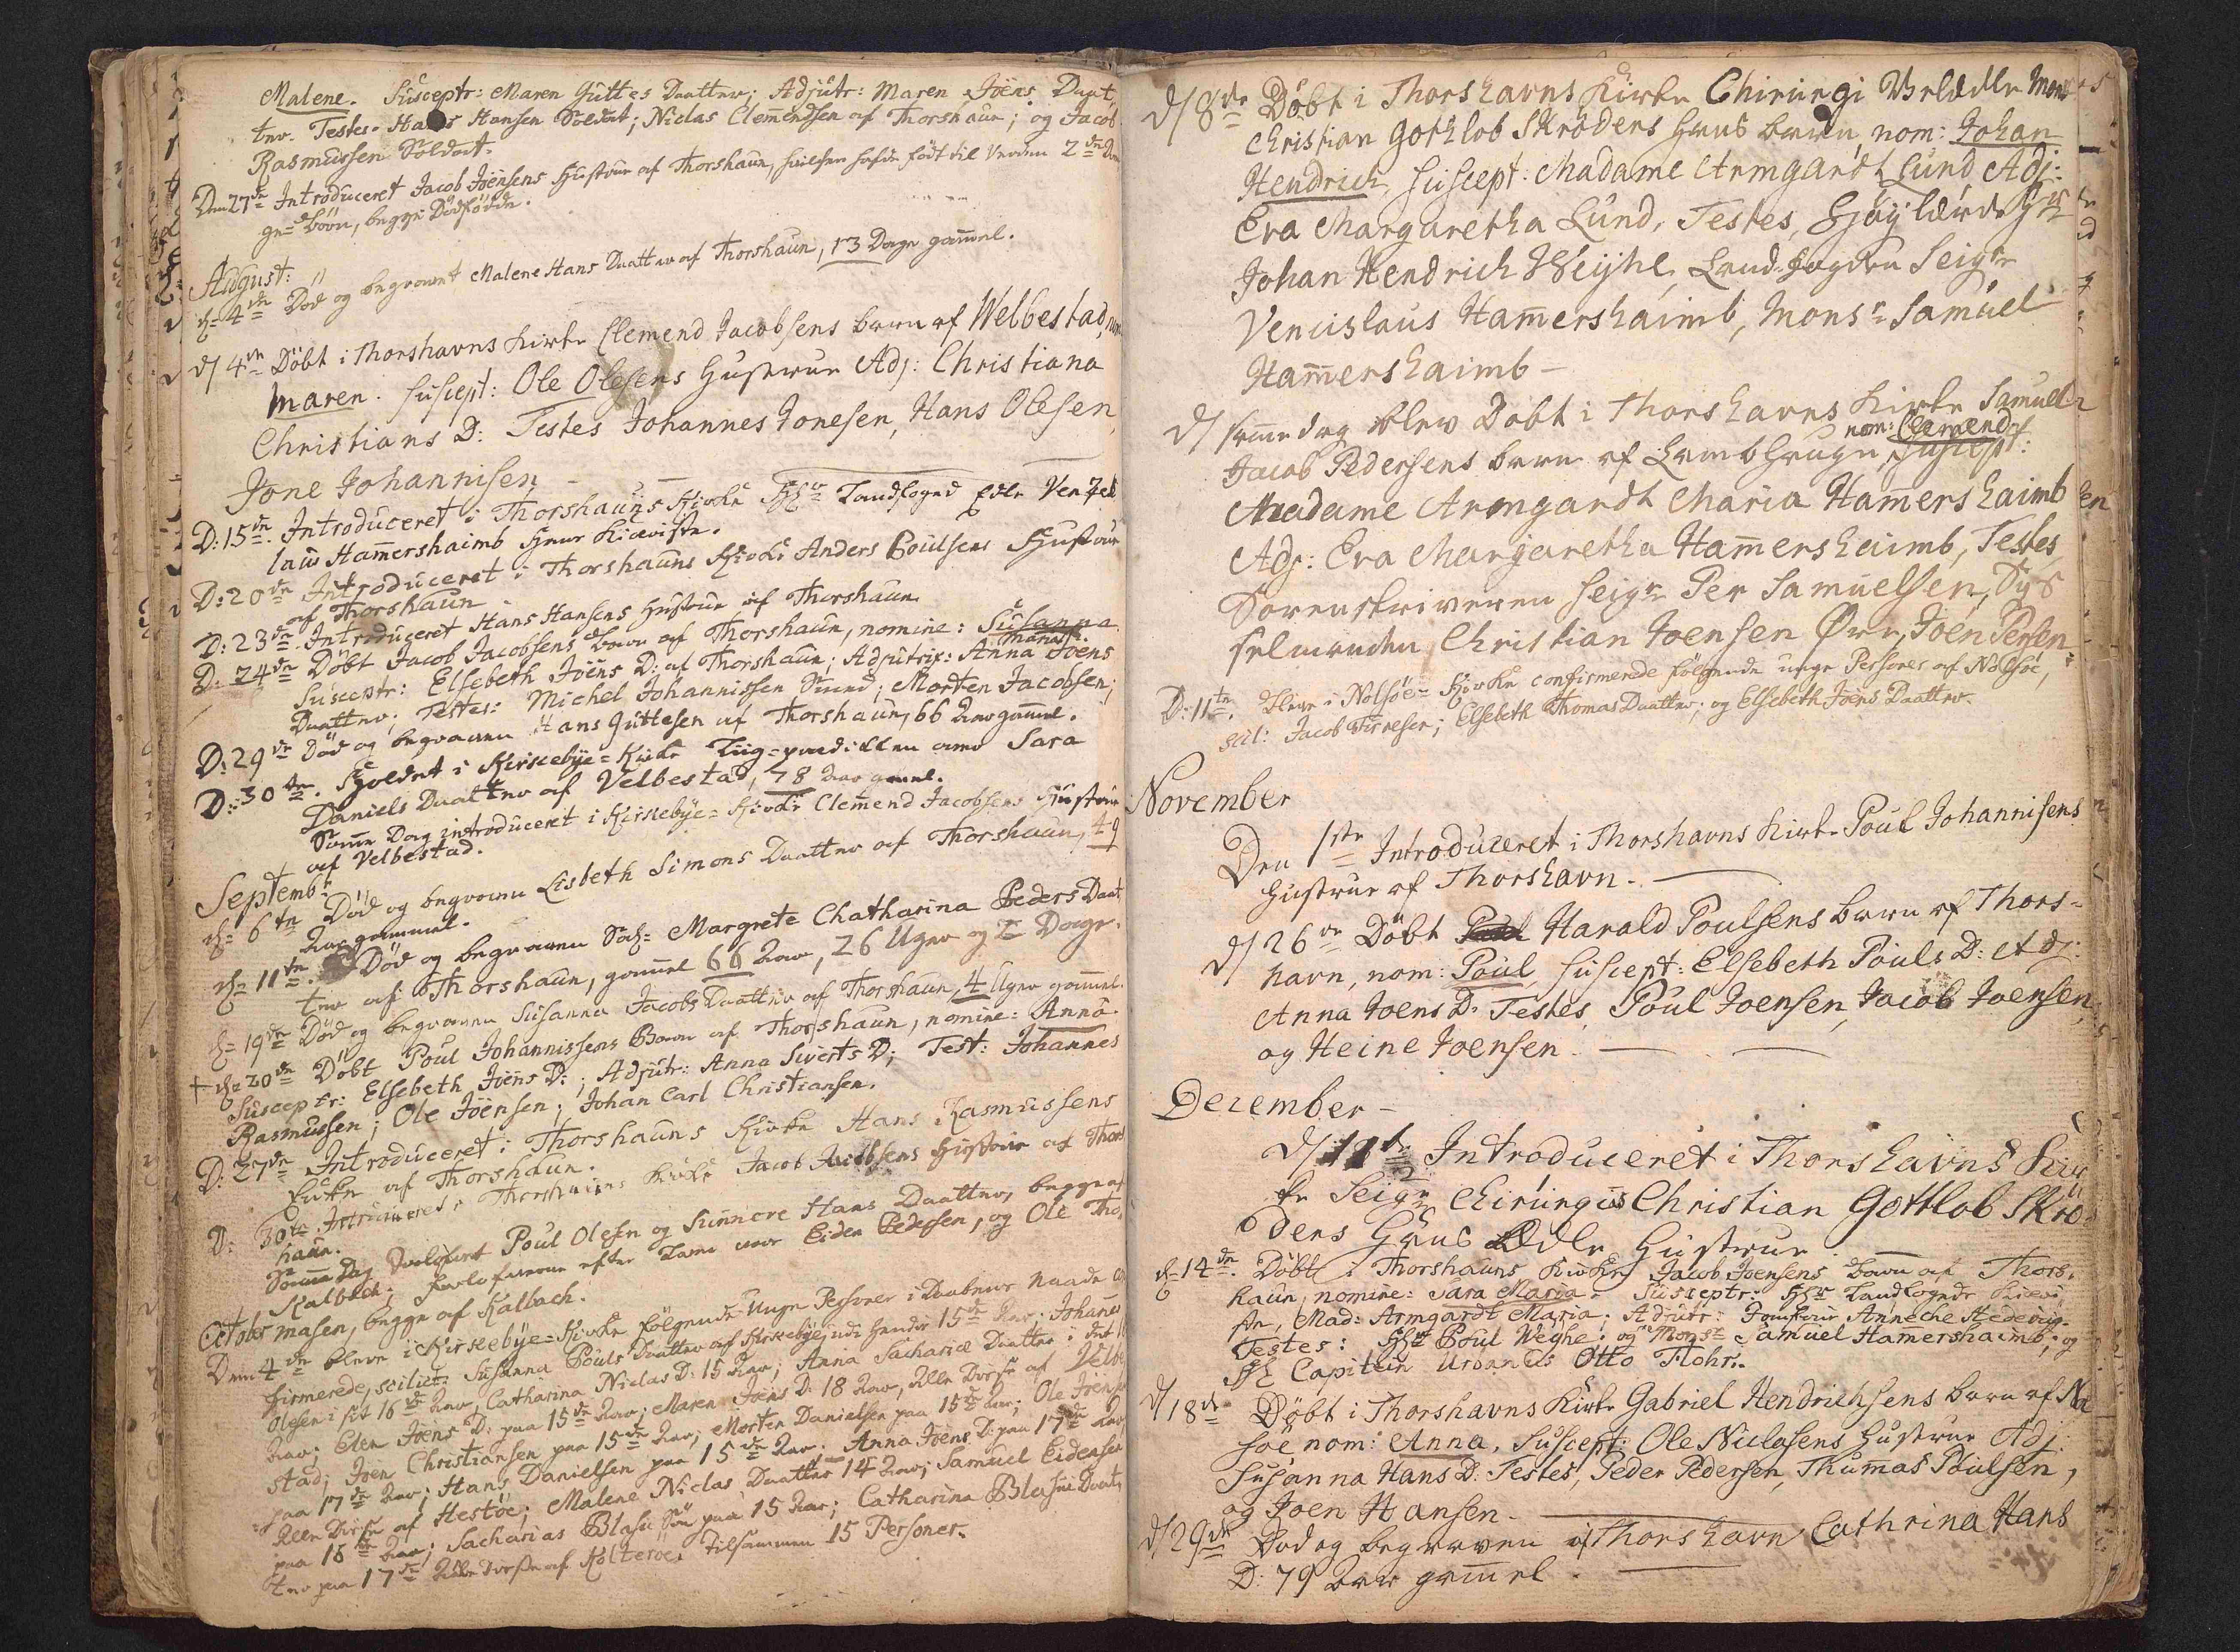 Malene. Susceptr: Maren Guttes Daatter; Adjutr: Maren Joens Daat,
ter. Testes. Hans Hansen Soldat; Niclas Clemendsen af Thorshaun; og Jacob
Rasmussen Soldat.
Den 27de Introduceret Jacob Joensens Hustrue af Thorshaun, hvilken hafde født til Verden 2de
ge= børn, begge Dødfødde.
August:
d= 4de Død og begravet Malene Hans Daatter af Thorshaun, 13 Dage gamel.
d/ 4de Døbt i Thorshavns Kirke Clemend Jacobsens barn af Welbestad, nom
Maren. suscept: Ole Olesens Hustrue Adj: Christiana
Christians D: Testes Johannes Jonesen, Hans Olesen,
Jone Johannisen
D: 15de. Introduceret i Thorshauns Kirke Hr Landfoged Edle Venzes
laus Hamershaimb Hans Kiereste.
D: 20de Introduceret i Thorshauns Kirke Anders Poulsens Hustrue
af Thorshaun
D: 23de. Introduceret Hans Hansens Hustrue af Thorshaun
D: 24de Døbt Jacob Jacobsens barn af Thorshaun, nomine: Susanna
Susceptr: Elsebeth Joens D: af Thorshaun; Adjutrix: Anna Joens
Daatter; Testes: Michel Johannissen Smed; Morten Jacobsen;
D: 29de Død og begraven Hans Guttesen af Thorshaun, 66 Aar gamel.
D: 30te. Holdet i Kirckebye= Kirke Liig=prædicken over Sara
Daniels Daatter af Velbestad, 78 Aar gamel.
Same Dag introduceret i Kirckebye= Kirke Clemend Jacobsens Hustrue
af Velbestad.
Septembr
d= 6te Død og begraven Lisbeth Simons Daatter af Thorshaun, 49
Aar gammel.
d= 11te. Død og begraven Margrete Chatharina Peders Daat
ter af Thorshaun, gamel 66 Aar, 26 Uger og 2 Dage.
d= 19de Død og begraven Susanna Jacobs Daatter af Thorshaun, 4 Uger gamel.
† d= 20de Døbt Poul Johannissens Barn af Thorshaun, nomine: Anna.
Susceptr: Elsebeth Joens D:; Adjutr: Anna Siverts D; Test: Johannes
Rasmussen; Ole Joensen; Johan Carl Christiansen.
D: 27de Introduceret i Thorshauns Kirke Hans Rasmussens
Enke af Thorshaun.
D: 30te Introduceret i Thorshauns Kirke Jacob Jacobsens Hustrue af Thors
haun.
Same Dag Trolovet Poul Olesen og Sunneve Hans Daatter, begge af
Kalbach; Forlofverne efter Loven vare Eiden Pedersen, og Ole Tho,
October masen, begge af Kalbach.
Den 4de bleve i Kirckebye= Kirke følgende Unge Personer i Daabens Naade
firmerede, scilicet: Susanna Pouls Daatter af Kirckebye, udi hendes 15de Aar; Johanes
Olesen i sit 16de Aar; Catharina Niclas D: 15 Aar; Anna Sachariæ Daatter i det
Aar; Elen Joens D: paa 15de Aar; Maren Joens D: 18 Aar, alle Disse af Velbe
stad; Joen Christiansen paa 15de Aar; Morten Danielsen paa 15de Aar; Ole Joensen
paa 17de Aar; Hans Danielsen paa 15de Aar. Anna Joens D: paa 17de Aar,
alle Disse af Hestøe; Malene Niclas Daatter 14 Aar; Samuel Eidensen
paa 16de Aar; Sacharias Blasii Søn paa 15 Aar; Catharina Blasii Daat,
ter paa 17de Aar disse af Kolteroe. Tilsammen 15 Personer.
d/ 8de Døbt i Thorshavns Kirke Chirurgi Velædle Mons
Christian Gothlob Skrøders Hans barn, nom: Johan
Hendrich, suscept: Madame Armgardt Lund Adj:
Eva Margaretha Lund, Testes, Højlærde Hr
Johan Hendrich Weijhe, Land-fogden Seigr
Venuslaus Hamershaimb, Monsr Samuel
Hamershaimb –
d/ same dag blev Døbt i Thorshavns Kirke Samuel
nom: Clemend
Jacob Pedersens barn af Lambhauge, suscept:
Madame Armgardt Maria Hamershaimb
Adj: Eva Margaretha Hamershaimb, Testes
Sorenskriveren Seigr Per Samuelsen, Sys
selmanden Christian Joensen Øre, Joen Persen
D: 11te. bleve i Nolsøe= Kirke confirmerede følgende unge Personer af Nolsøe,
scil: Jacob; Elsebeth Thomas Daatter; og Elsebeth Joens Daatter.
November
Den 1ste Introduceret i Thorshavns Kirke Poul Johannisens
Hustrue af Thorshavn.
d/ 26de Døbt Harald Poulsens barn af Thors=
havn, nom: Poul, suscept: Elsebeth Pouls D: Adj:
Anna Joens D: Testes, Poul Joensen, Jacob Joensen,
og Heine Joensen.
December –
d/ 11te Introduceret i Thorshavns Kir
ke Seigr Chirurgus Christian Gottlob Skrø=
ders Hans Ædle Hustrue.
d= 14de. Døbt i Thorshauns Kirke Jacob Joensens barn af Thors,
haun, nomine: Sara Maria. Susceptr: Hr Landfogeds Kiere,
ste, Mad: Armgardt Maria; Adjutr: Jomfrue Anneche Hedevig.
Testes: Hr Poul Weyhe; og Monsr Samuel Hamershaimb; og
Hr Capitein Urbanus Otto Flohr.
d/ 18de Døbt i Thorshavns Kirke Gabriel Hendrichsens barn af Nol
søe nom: Anna, suscept: Ole Niclasens Hustrue Adj:
Susanna Hans D: Testes, Peder Pedersen, Thumas Poulsen,
og Joen Hansen.
d/ 29de Død og begraven af Thorshavn Cathrina Hans
D: 79 Aar gamel.